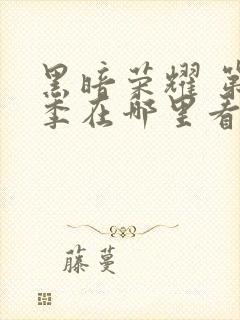 黑暗荣耀 第
季在哪里看
藤蔓